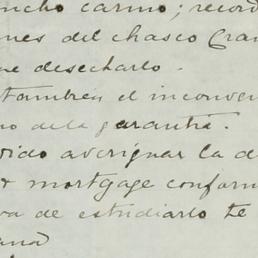 ncho carino; record
nes del chasco Gran
ne desecharlo.
tambien el inconven
no de la garantia.
vido averiguar la d
& mortgage conform
va de estudiarlo te
ana